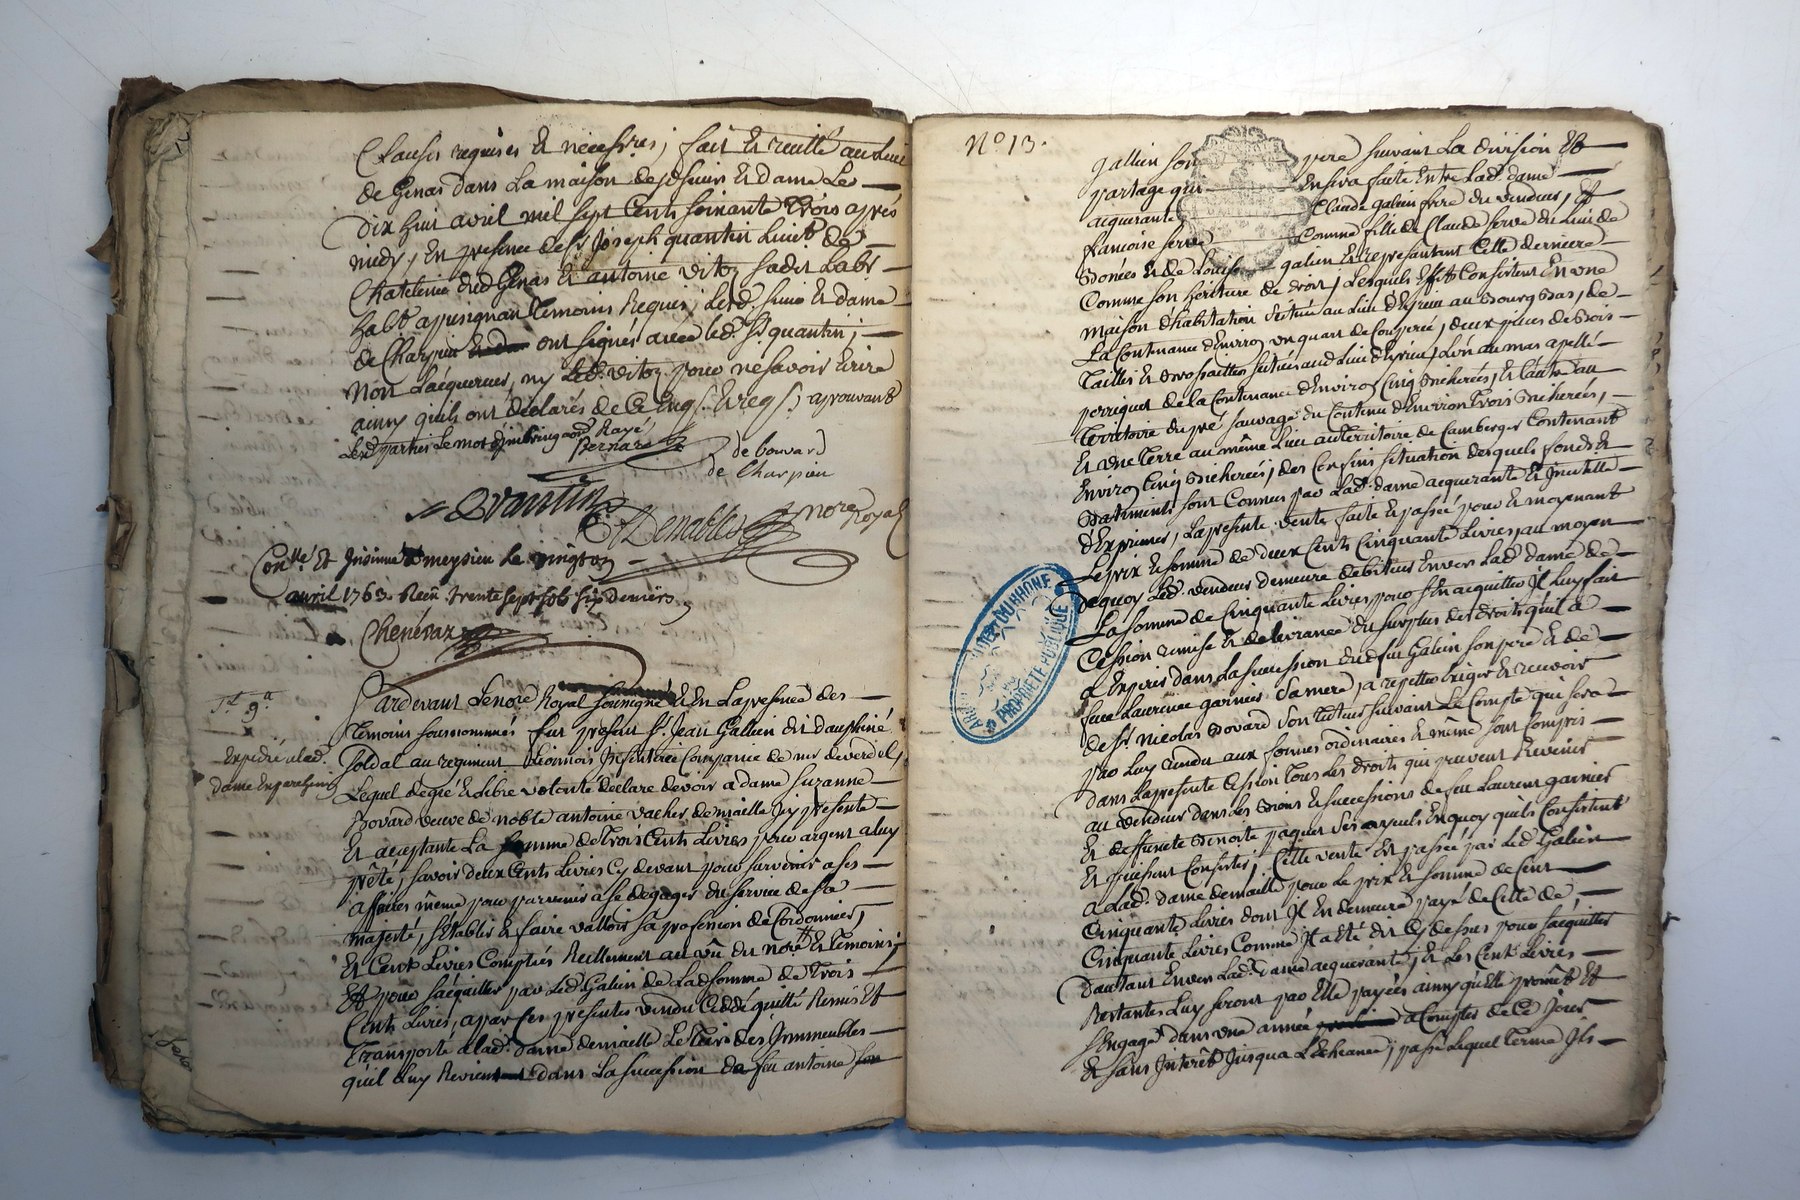 Clauses requises et nécess.res, fait et recitté au lieu
de Genas dans la maison desd. sieur et dame le
dix huit avril mil sept cents soixante trois après
midy, en présence de Sr Joseph quantin lieut. de
Chatelenie dud Genas et antoine vitoz dud. lieu
habt. témoins Requis, lesd. sieur et dame
de Charpieu ont signés avec led. Sr quantin,
non l'acquereur, ny led. vitoz pour ne savoir écrire
ainsy quils ont déclarés de ce Enq. (et req.) aprouvant
Lesd parties le mot Rayé
Bernard de bovard
de Charpieu
Quantin
Denables nore Royal
Conllé et Insinué à meysieu le vingtroy
avril 1763. Reçu trente sept sols six deniers
Chenévaz
Expédié à lad.
dame En parchemin
Pardevant Le nore Royal soussigné et en la présence des
témoins sousnommés fut présent Sr. Jean Gallien dit dauphiné
soldat au regiment Lionnois Infanterie Compagnie de mr deverdel,
Lequel de gré et libre volonté déclare devoir a dame Suzanne
Bovard veuve de noble antoine vacher demaille icy présente
et acceptante La somme de trois Cents Livres pour argent a luy
prêté, savoir deux Cents Livres Cy devant pour survenir a ses
affaires même pour parvenir a se degager du service de sa
majesté, s'établir et faire valloir sa profession de Cordonnier,
Et Cent Livres Comptés Reellement au vû du nore. et témoins,
Et pour s'acquitter par led. Galien de lad somme de trois
Cents Livres, a par ces présentes vendu Cédé quitté Remis et
transporté a lad. dame demaille Le tiers des Immeubles
qu'il luy Revient dans la succession de feu antoine
N° 13.
gallien son père suivant La division et
partage qui En sera faite Entre lad. dame
acquerante Claude galien frère du vendeur, et
françoise serve Comme fille de Claude serve du lieu de
Bonées et de Louise galien et représentant Cette dernière
Comme son héritière de droit, Lesquels Consistent En une
maison d'habitation scituée au lieu d'heyrieu au Bourg Bas, de
La Contenance d'environ un quart de Couperée, deux pièces de Bois
taillis et Brossailles scitués aud Lieu d'heyrieu, L'un au mas apellé
perriguet de la Contenance d'environ Cinq Bicherées, et l'autre au
territoire du pré sauvage du Contenu d'environ trois Bicherées,
Et une Terre au même Lieu au territoire de Camberger Contenant
Environ Cinq Bicherées, des Confins situation desquels fonds et
Batiments sont Connus par Lad. dame acquerante et Inutille
d'Exprimer, La présente vente faite et passée pour et moyenant
Le prix et somme de deux Cents Cinquante Livres, au moyen
dequoy Led. vendeur demeure debiteur Envers Lad. dame de
La somme de Cinquante Livres pour s'En acquitter Il Luy fait
Cession remise et delivrance du surplus des droits qu'il a
a Exiger dans la succession dud feu Galien son père et de
feue Laurence garnier sa mère, a repetter Exiger et recevoir
de Sr. Nicolas Bovard son tuteur suivant le Compte qui sera
par Luy rendu aux formes ordinaires et même sont Compris
dans la présente Cession tous les droits qui peuvent Revenir
au vendeur dans les Biens et successions de feu Laurent garnier
Et pase quels Enquoy qu'ils Consistent
Et puissent Consister, Cette vente Est passée par led. Galien
a lad. dame demaille pour le prix et somme de Cent
Cinquante Livres dont Il En demeure payé de Celle de
Cinquante Livres Comme Il a été dit Cy dessus pour s'acquitter
d'autant Envers Lad. dame acquerante, et Les Cent Livres
Restantes Luy seront par Elle payées ainsy qu'elle promet et
s'Engage dans une année a Compter de Ce Jour
Et sans Interêt Jusqua L'écheance, passé Lequel terme Ils
ARCHIVES DU RHONE
PROPRIÉTÉ PUBLIQUE